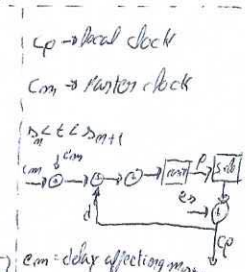 Cp → local clock
Cm → Master clock
s_m < t < s_m+1
Cm
em
P
es
d
Cp
em = delay affecting